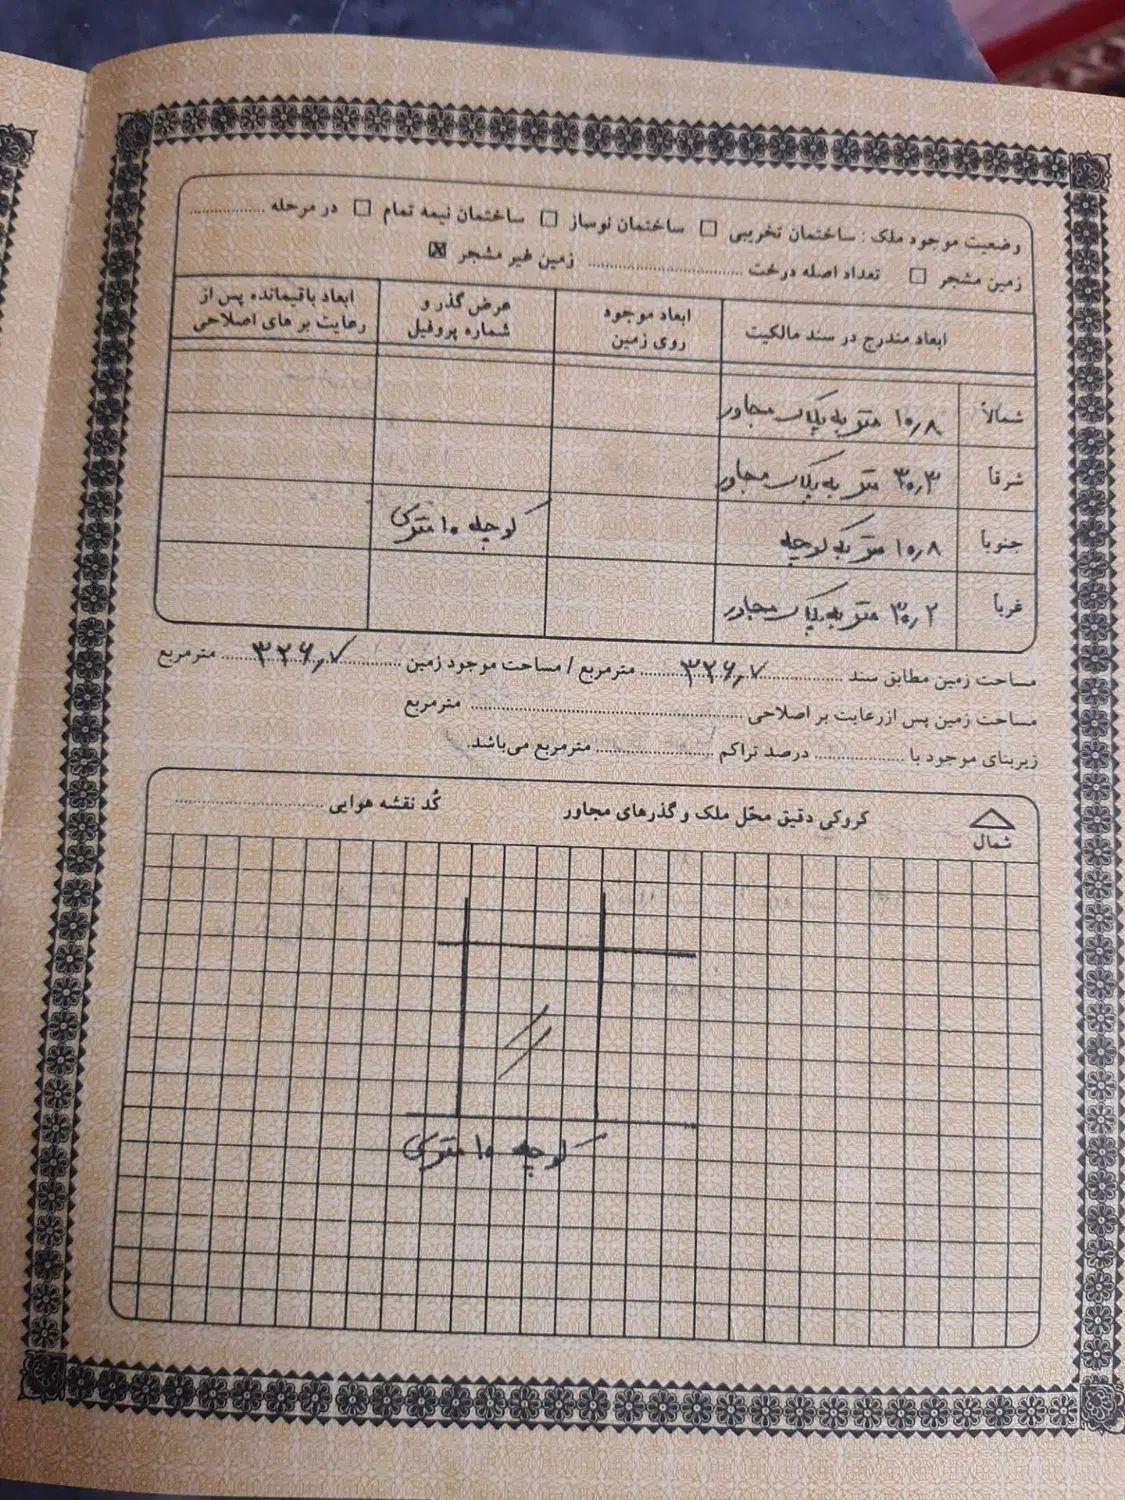 وضعیت موجود ملک : ساختمان تخریبی ☐ ساختمان نوساز ☐ ساختمان نیمه تمام ☐ در مرحله ....................
زمین مشجر ☐ تعداد اصله درخت ........................................ زمین غیر مشجر ☒
ابعاد مندرج در سند مالکیت | ابعاد موجود روی زمین | عرض گذر و شماره پروفیل | ابعاد باقیمانده پس از رعایت بر های اصلاحی
شمالاً ۱۰٫۸ متر به پلاک مجاور
شرقا ۳۰٫۳ متر به پلاک مجاور
جنوبا ۱۰٫۸ متر به کوچه کوچه ۱۰ متری
غربا ۳۰٫۲ متر به پلاک مجاور
مساحت زمین مطابق سند ۳۲۶٫۷ مترمربع / مساحت موجود زمین ۳۲۶٫۷ مترمربع
مساحت زمین پس ازرعایت بر اصلاحی ........................................ مترمربع
زیربنای موجود با .................... درصد تراکم .................... مترمربع می‌باشد.
شمال
کروکی دقیق محّل ملک و گذرهای مجاور کُد نقشه هوایی ....................
کوچه ۱۰ متری